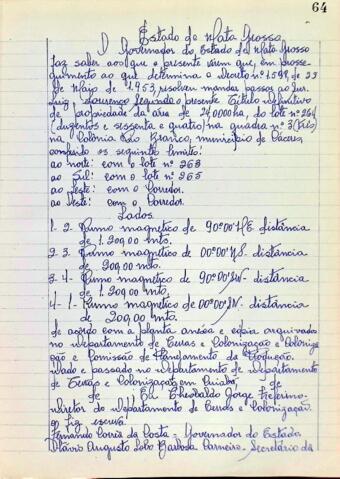 64
Estado de Mato Grosso
O Governador do Estado de Mato Grosso
faz saber aos que o presente virem que, em prosse-
guimento ao que determina o decreto nº 1.598, de 23
de Maio de 1.953, resolveu mandar passar ao Snr.
Luiz Lourenço Segundo o presente Título definitivo
de propriedade da área de 24,0000 ha, do lote nº 264
(duzentos e sessenta e quatro) na quadra nº 3 (três)
na Colônia Rio Branco, município de Cáceres,
contendo os seguintes limites:
ao norte: com o lote nº 263
ao Sul: com o lote nº 265
ao Leste: com o Corredor.
ao Oeste: com o Corredor.
Lados
1- 2- Rumo magnético de 90º00' distância
de 1.200,00 mts.
2- 3- Rumo magnético de 00º00' distância
de 200,00 mts.
3- 4- Rumo magnético de 90º00' distância
de 1.200,00 mts.
4- 1- Rumo magnético de 00º00' distância
de 200,00 mts.
de acôrdo com a planta anexa e cópia arquivada
no Departamento de Terras e Colonização e
e Comissão de Planejamento da Produção.
dado e passado no Departamento de Departamento
de Terras e Colonização, em Cuiabá, de
de Eu Theobaldo Jorge
diretor do Departamento de Terras e Colonização.
o fiz escrever.
Fernando Corrêa da Costa - Governador do Estado
Otávio Augusto Lobo Barbosa Carneiro - Secretário da